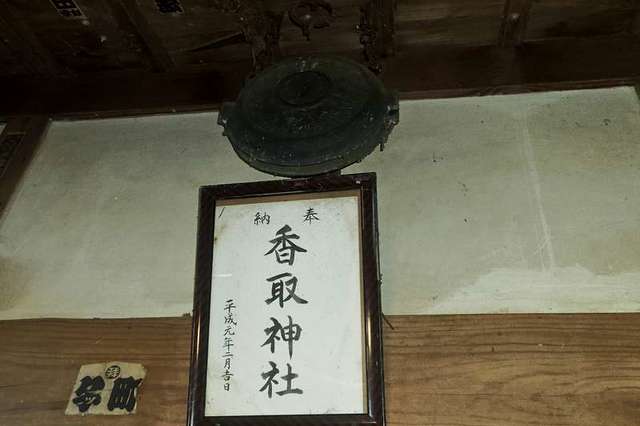 奉納
香取神社
平成元年二月吉日